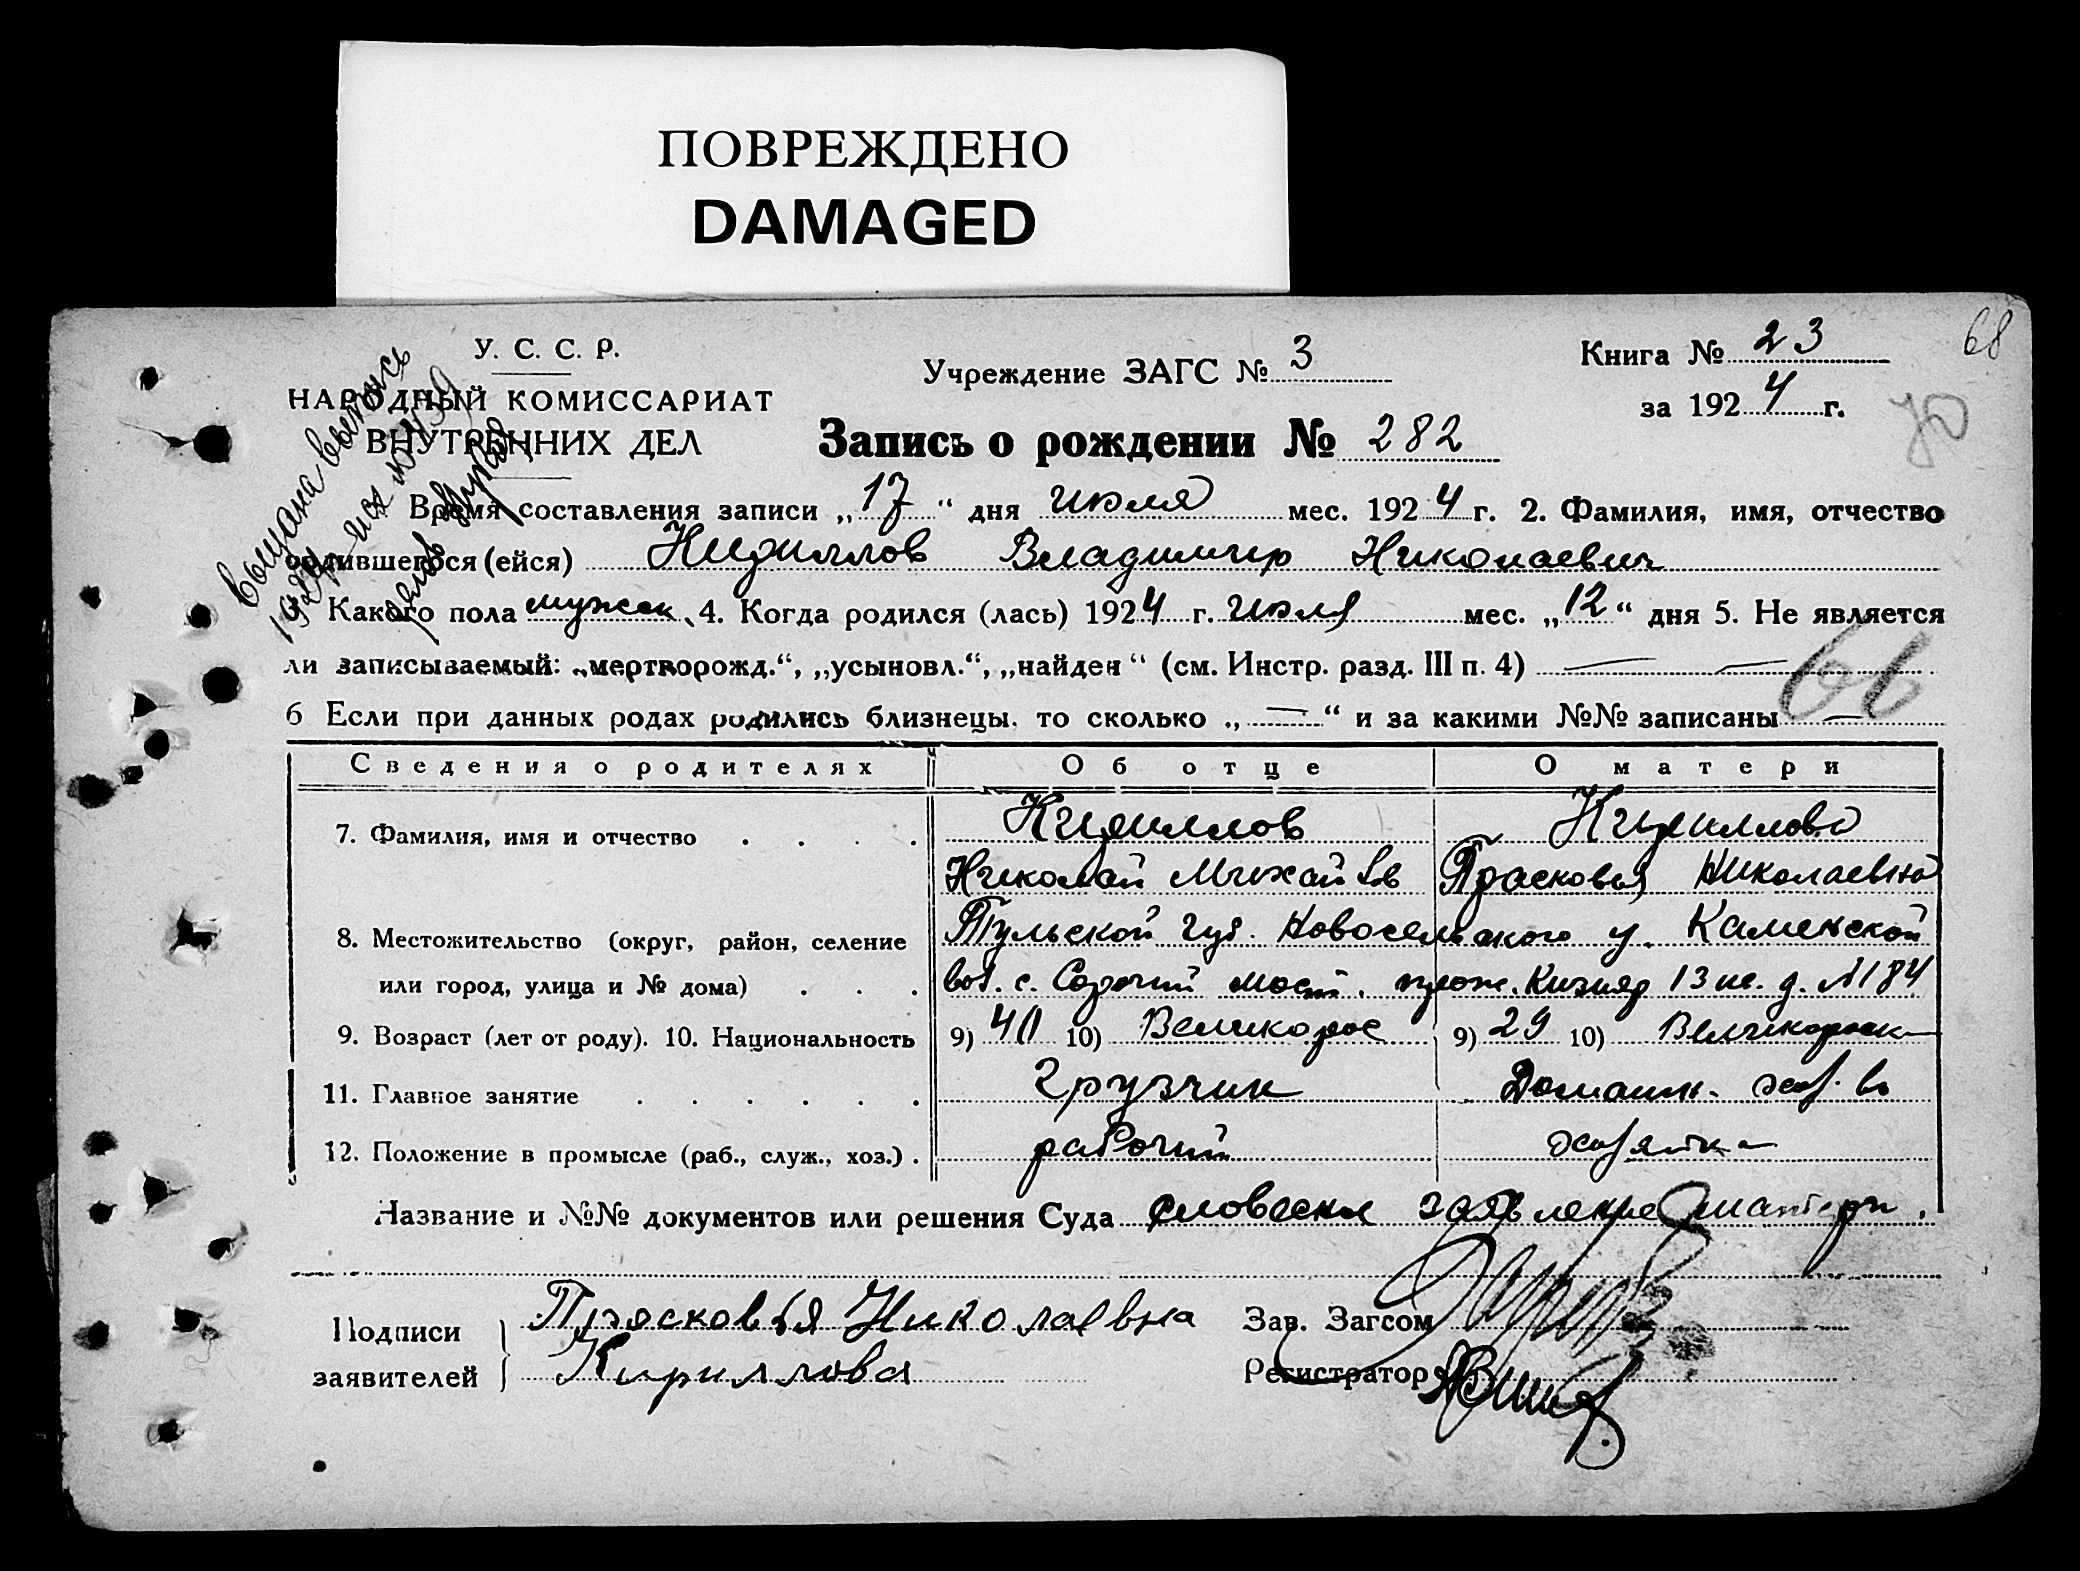 ПОВРЕЖДЕНО
DAMAGED
У. С. С. Р.
НАРОДНЫЙ КОМИССАРИАТ
ВНУТРЕННИХ ДЕЛ
Учреждение ЗАГС № 3
Книга № 23
за 1924 г.
68
70
Запись о рождении № 282
Выдана выпись
Время составления записи „17“ дня июля мес. 1924 г. 2. Фамилия, имя, отчество
родившегося (ейся) Кириллов Владимир Николаевич
Какого пола мужск. 4. Когда родился (лась) 1924 г. июля мес. „12“ дня 5. Не является
ли записываемый: „мертворожд.“, „усыновл.“, „найден“ (см. Инстр. разд. III п. 4) — —
66
6 Если при данных родах родились близнецы, то сколько „—“ и за какими №№ записаны —
Сведения о родителях Об отце О матери
7. Фамилия, имя и отчество Кириллов Кириллова
Николай Михайлов Прасковья Николаевна
8. Местожительство (округ, район, селение Тульской губ. Новосельского у. Каменской
или город, улица и № дома) вол. с. мост. прож. 13 д. №184
9. Возраст (лет от роду). 10. Национальность 9) 40 10) Великорос 9) 29 10) Великороска
11. Главное занятие грузчик Домашн. хоз. во
12. Положение в промысле (раб., служ., хоз.) рабочий хозяйка
Название и №№ документов или решения Суда словесное заявление матери.
Подписи Прасковья Николаевна
заявителей Кириллова
Зав. Загсом
Регистратор